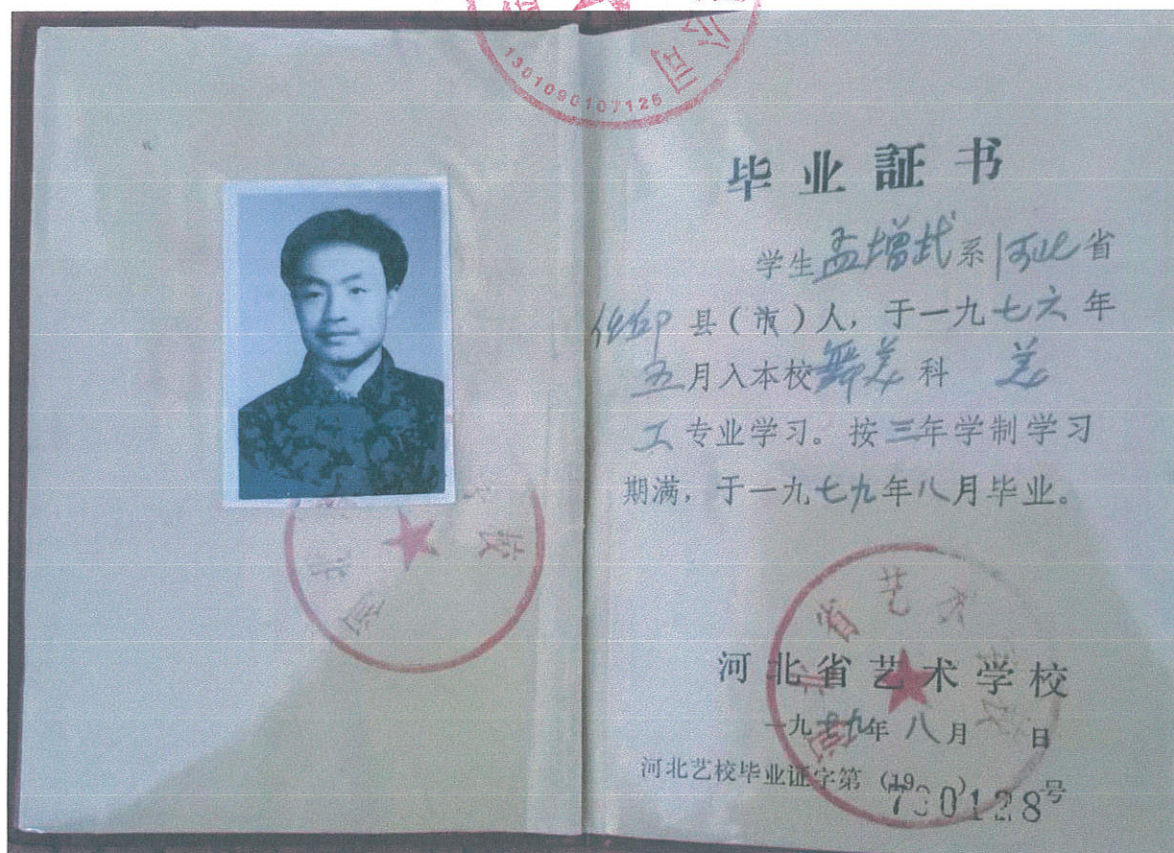 公司
1301090107126
毕业証书
学生孟增武系河北省
任邱县（市）人，于一九七六年
五月入本校舞美科 美
工专业学习。按三年学制学习
期满，于一九七九年八月毕业。
河北省艺术学校
河北省艺术学校
一九七九年八月 日
河北艺校毕业证字第（19 ）790128号